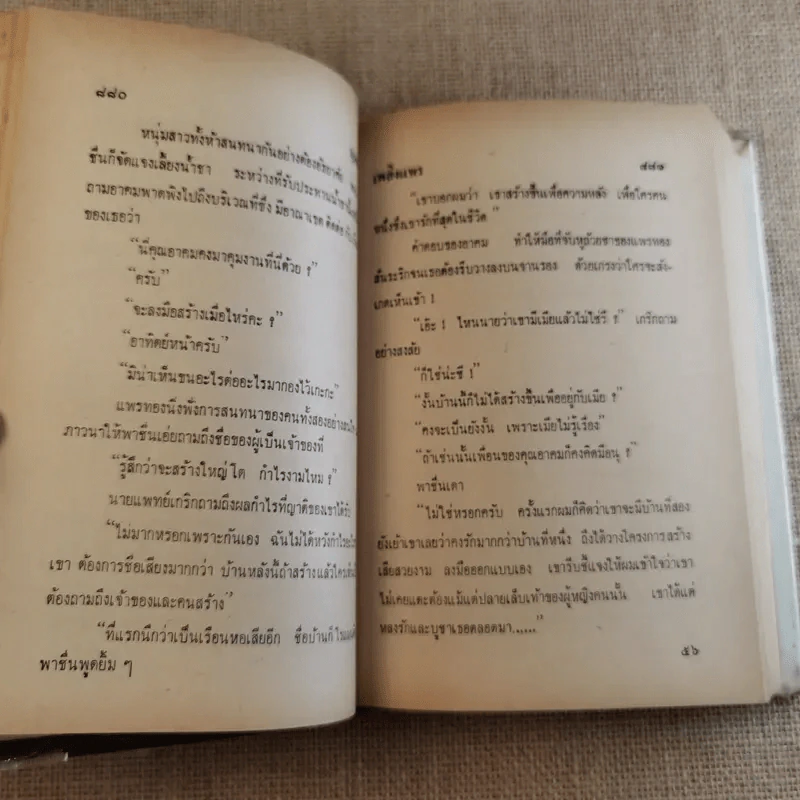 ๘๘๐
หนุ่มสาวทั้งห้าสนทนากันอย่างต้องอัธยาศัย
ชื่นก็จัดแจงเลี้ยงน้ำชา ระหว่างที่รับประทานน้ำชา
ถามอาคมพาดพิงไปถึงบริเวณที่ซึ่ง มีอาณาเขต ติดต่อ
ของเธอว่า
“นี่คุณอาคมคงมาคุมงานที่นี่ด้วย ?
“ครับ”
“จะลงมือสร้างเมื่อไหร่คะ ?
“อาทิตย์หน้าครับ”
“มิน่าเห็นขนอะไรต่ออะไรมากองไว้เกะกะ”
แพรทองนั่งฟังการสนทนาของคนทั้งสองอย่าง
ภาวนาให้พาชื่นเอ่ยถามถึงชื่อของผู้เป็นเจ้าของที่
“รู้สึกว่าจะสร้างใหญ่โต กำไรงามไหม ?
นายแพทย์เกริกถามถึงผลกำไรที่ญาติของเขาได้รับ
“ไม่มากหรอกเพราะกันเอง ฉันไม่ได้หวังกำไร
เขา ต้องการชื่อเสียงมากกว่า บ้านหลังนี้ถ้าสร้างแล้วใคร
ต้องถามถึงเจ้าของและคนสร้าง”
“ที่แรกนึกว่าเป็นเรือนหอเสียอีก ชื่อบ้านก็
พาชื่นพูดยิ้ม ๆ
เพลิงแพร ๘๘๑
“เขาบอกผมว่า เขาสร้างขึ้นเพื่อความหลัง เพื่อใครคน
หนึ่งซึ่งเขารักที่สุดในชีวิต”
คำตอบของอาคม ทำให้มือที่จับหูถ้วยชาของแพรทอง
สั่นระริกจนเธอต้องรีบวางลงบนจานรอง ด้วยเกรงว่าใครจะสัง-
เกตเห็นเข้า !
“เอ๊ะ ! ไหนนายว่าเขามีเมียแล้วไม่ใช่รึ ? เกริกถาม
อย่างสงสัย
“ก็ใช่น่ะซี !
“งั้นบ้านนี้ก็ไม่ได้สร้างขึ้นเพื่ออยู่กับเมีย ?
“คงจะเป็นยังงั้น เพราะเมียไม่รู้เรื่อง”
“ถ้าเช่นนั้นเพื่อนของคุณอาคมก็คงคิดมีอนุ ?
พาชื่นเดา
“ไม่ใช่หรอกครับ ครั้งแรกผมก็คิดว่าเขาจะมีบ้านที่สอง
ยังเย้าเขาเลยว่าคงรักมากกว่าบ้านที่หนึ่ง ถึงได้วางโครงการสร้าง
เสียสวยงาม ลงมือออกแบบเอง เขารีบชี้แจงให้ผมเข้าใจว่าเขา
ไม่เคยแตะต้องแม้แต่ปลายเล็บเท้าของผู้หญิงคนนั้น เขาได้แต่
หลงรักและบูชาเธอตลอดมา......”
๕๖